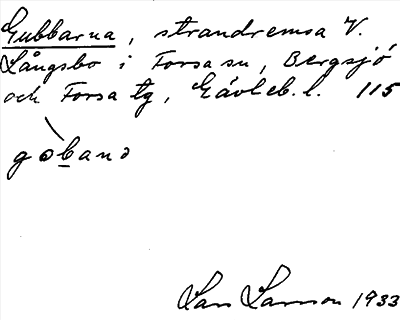 Gubbarna, strandremsa V.
Långsbo i Forsa sn, Bergsjö
och Forsa tg, Gävleb. l. 115
gɵ̀banɔ
Lars Larsson 1933